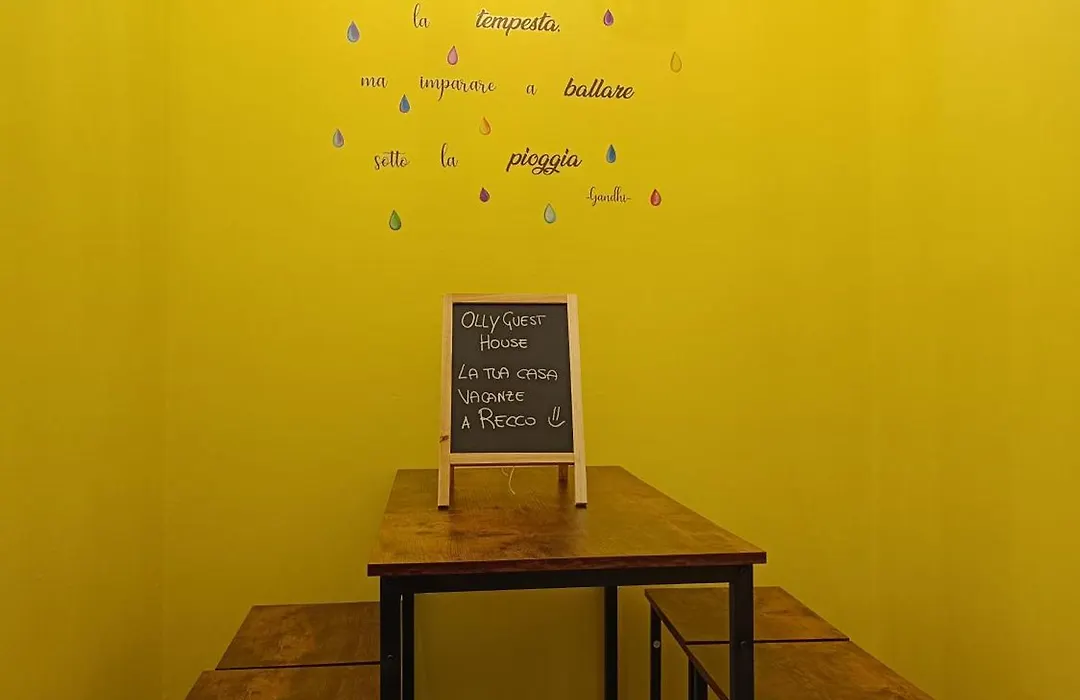 la tempesta.
ma imparare a ballare
sotto la pioggia
-Gandhi-
OLLY GUEST
HOUSE
LA TUA CASA
VACANZE
A RECCO